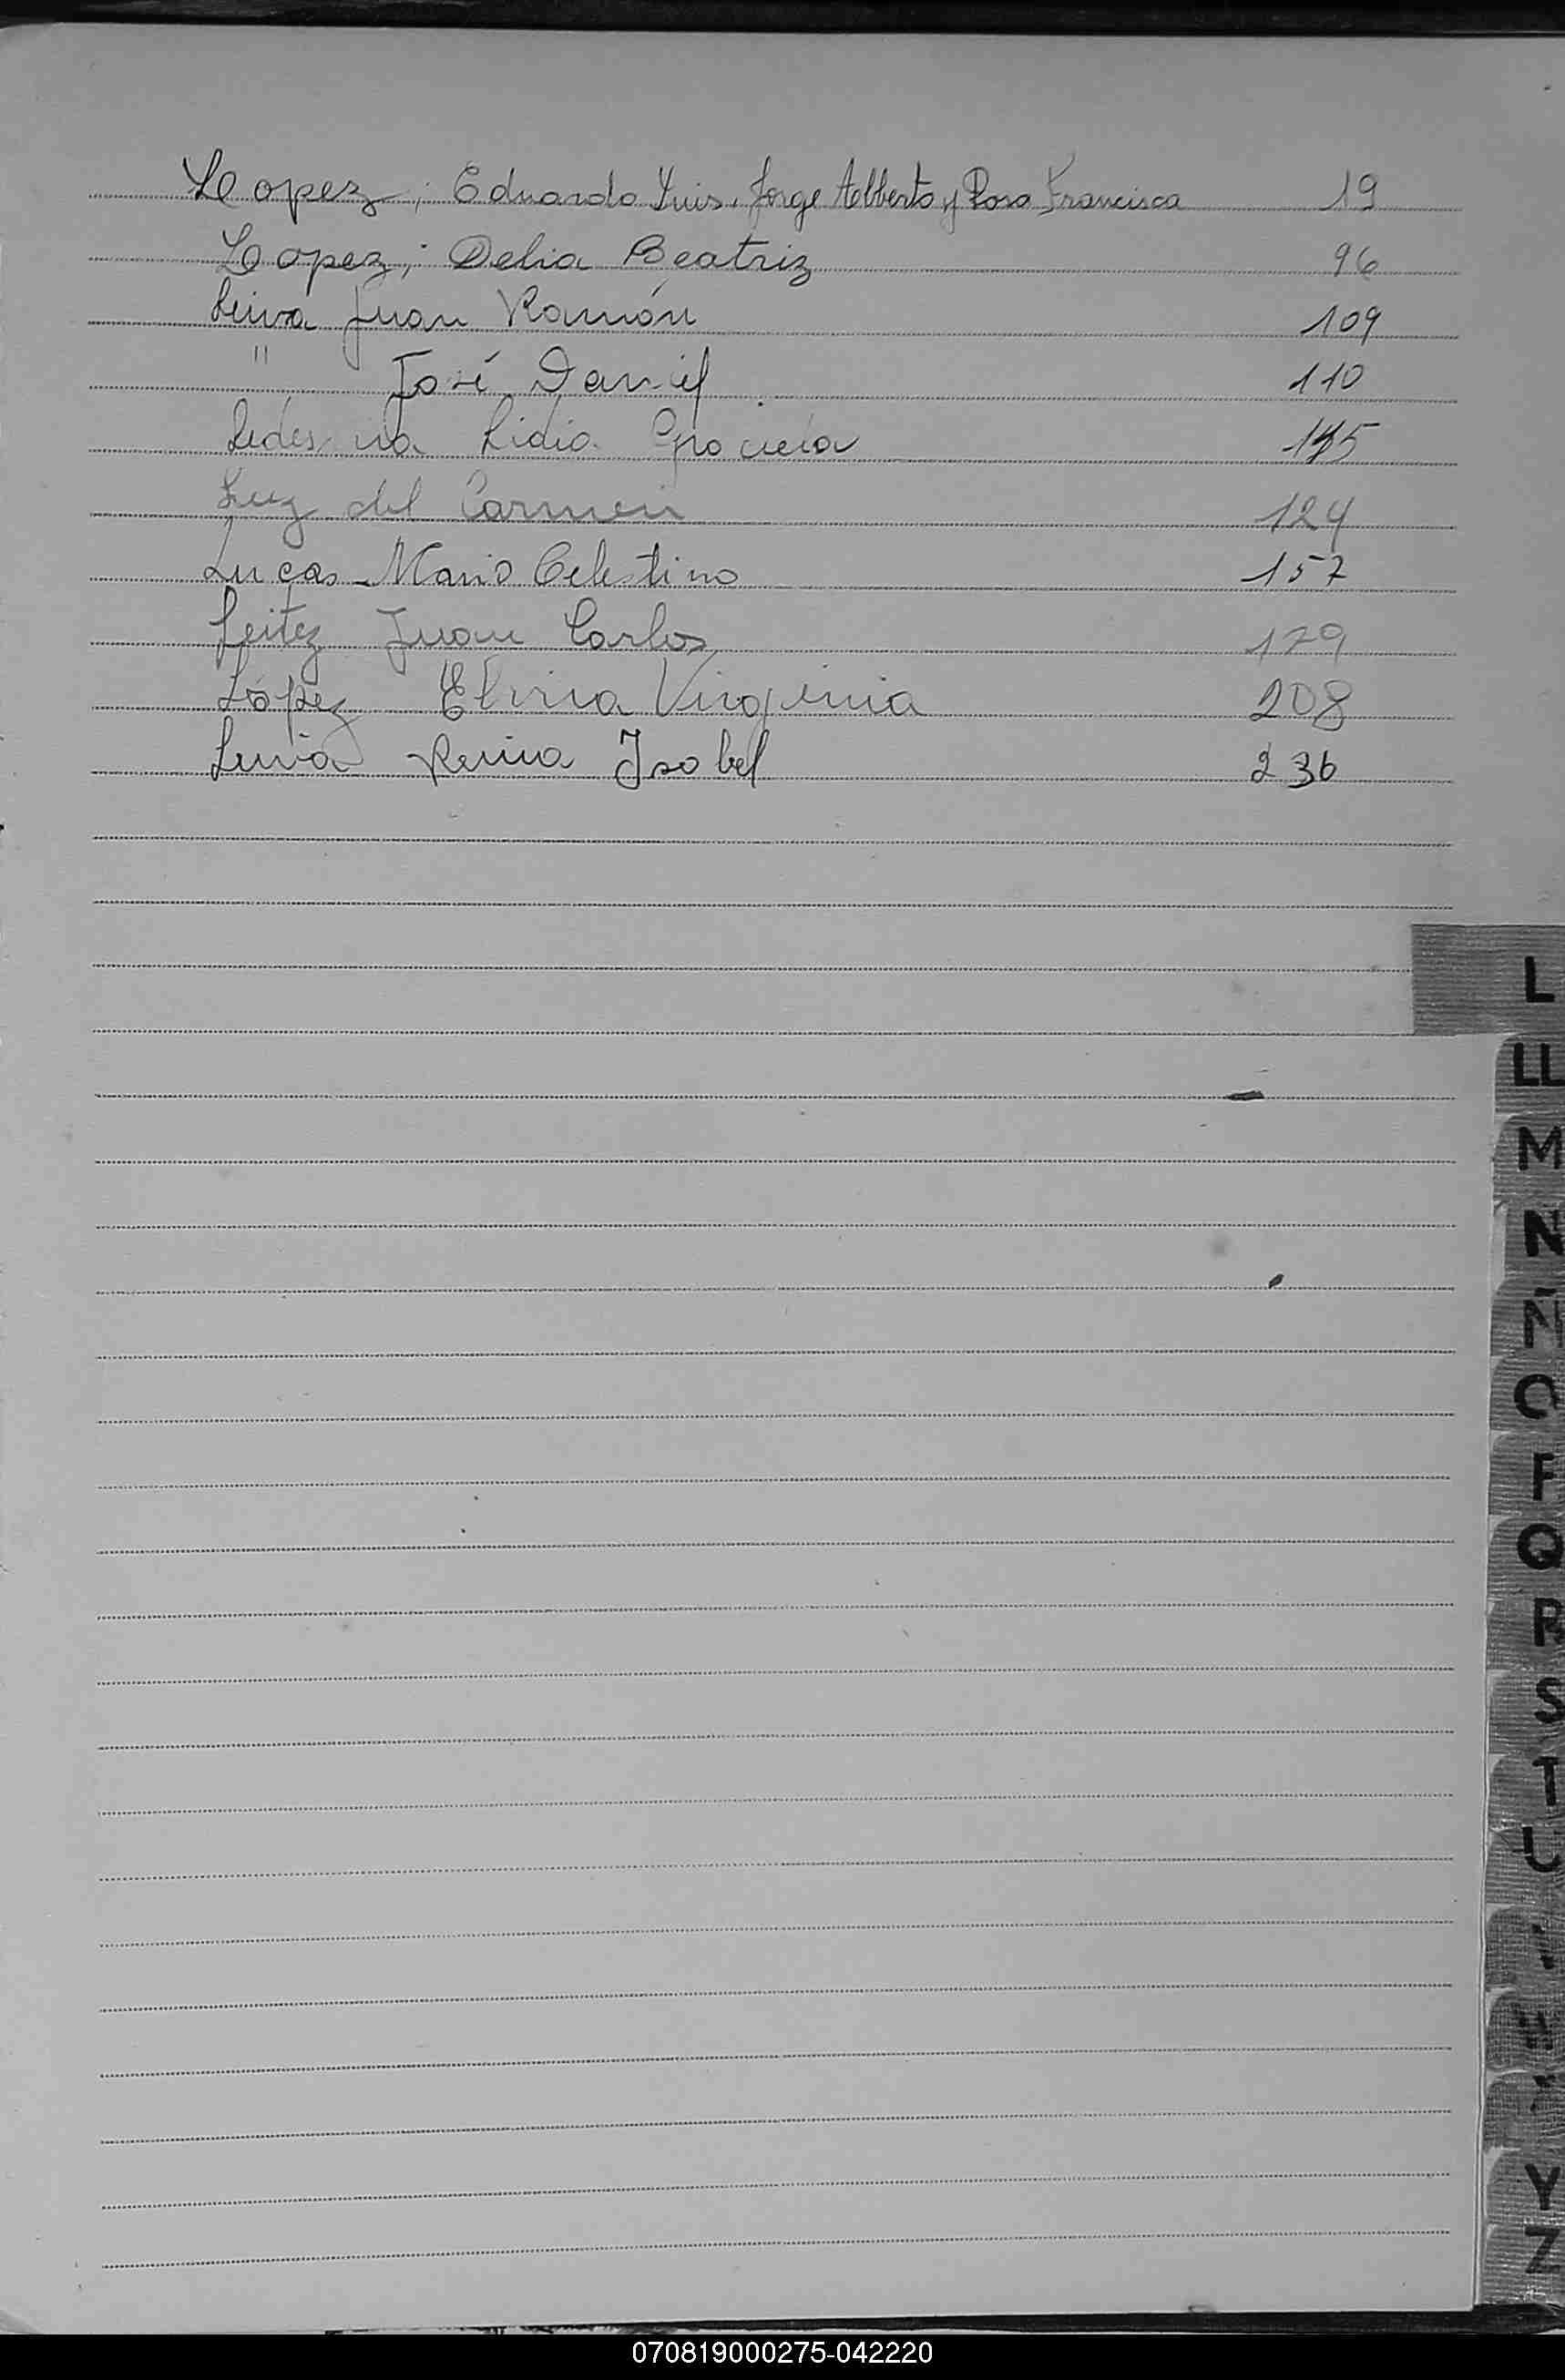 Lopez; Eduardo Luis, Jorge Alberto y Rosa Francisca 19
Lopez; Delia Beatriz 96
Leiva Juan Ramón 109
" José Daniel 110
Ledesma Lidia Graciela
Luz del Carmen 124
Lucas Mario Celestino 157
Leitez Juan Carlos 179
López Elvira Virginia 208
Leiva Reina Isabel 236
L
LL
M
N
Ñ
O
P
Q
R
S
T
U
Y
Z
070819000275-042220